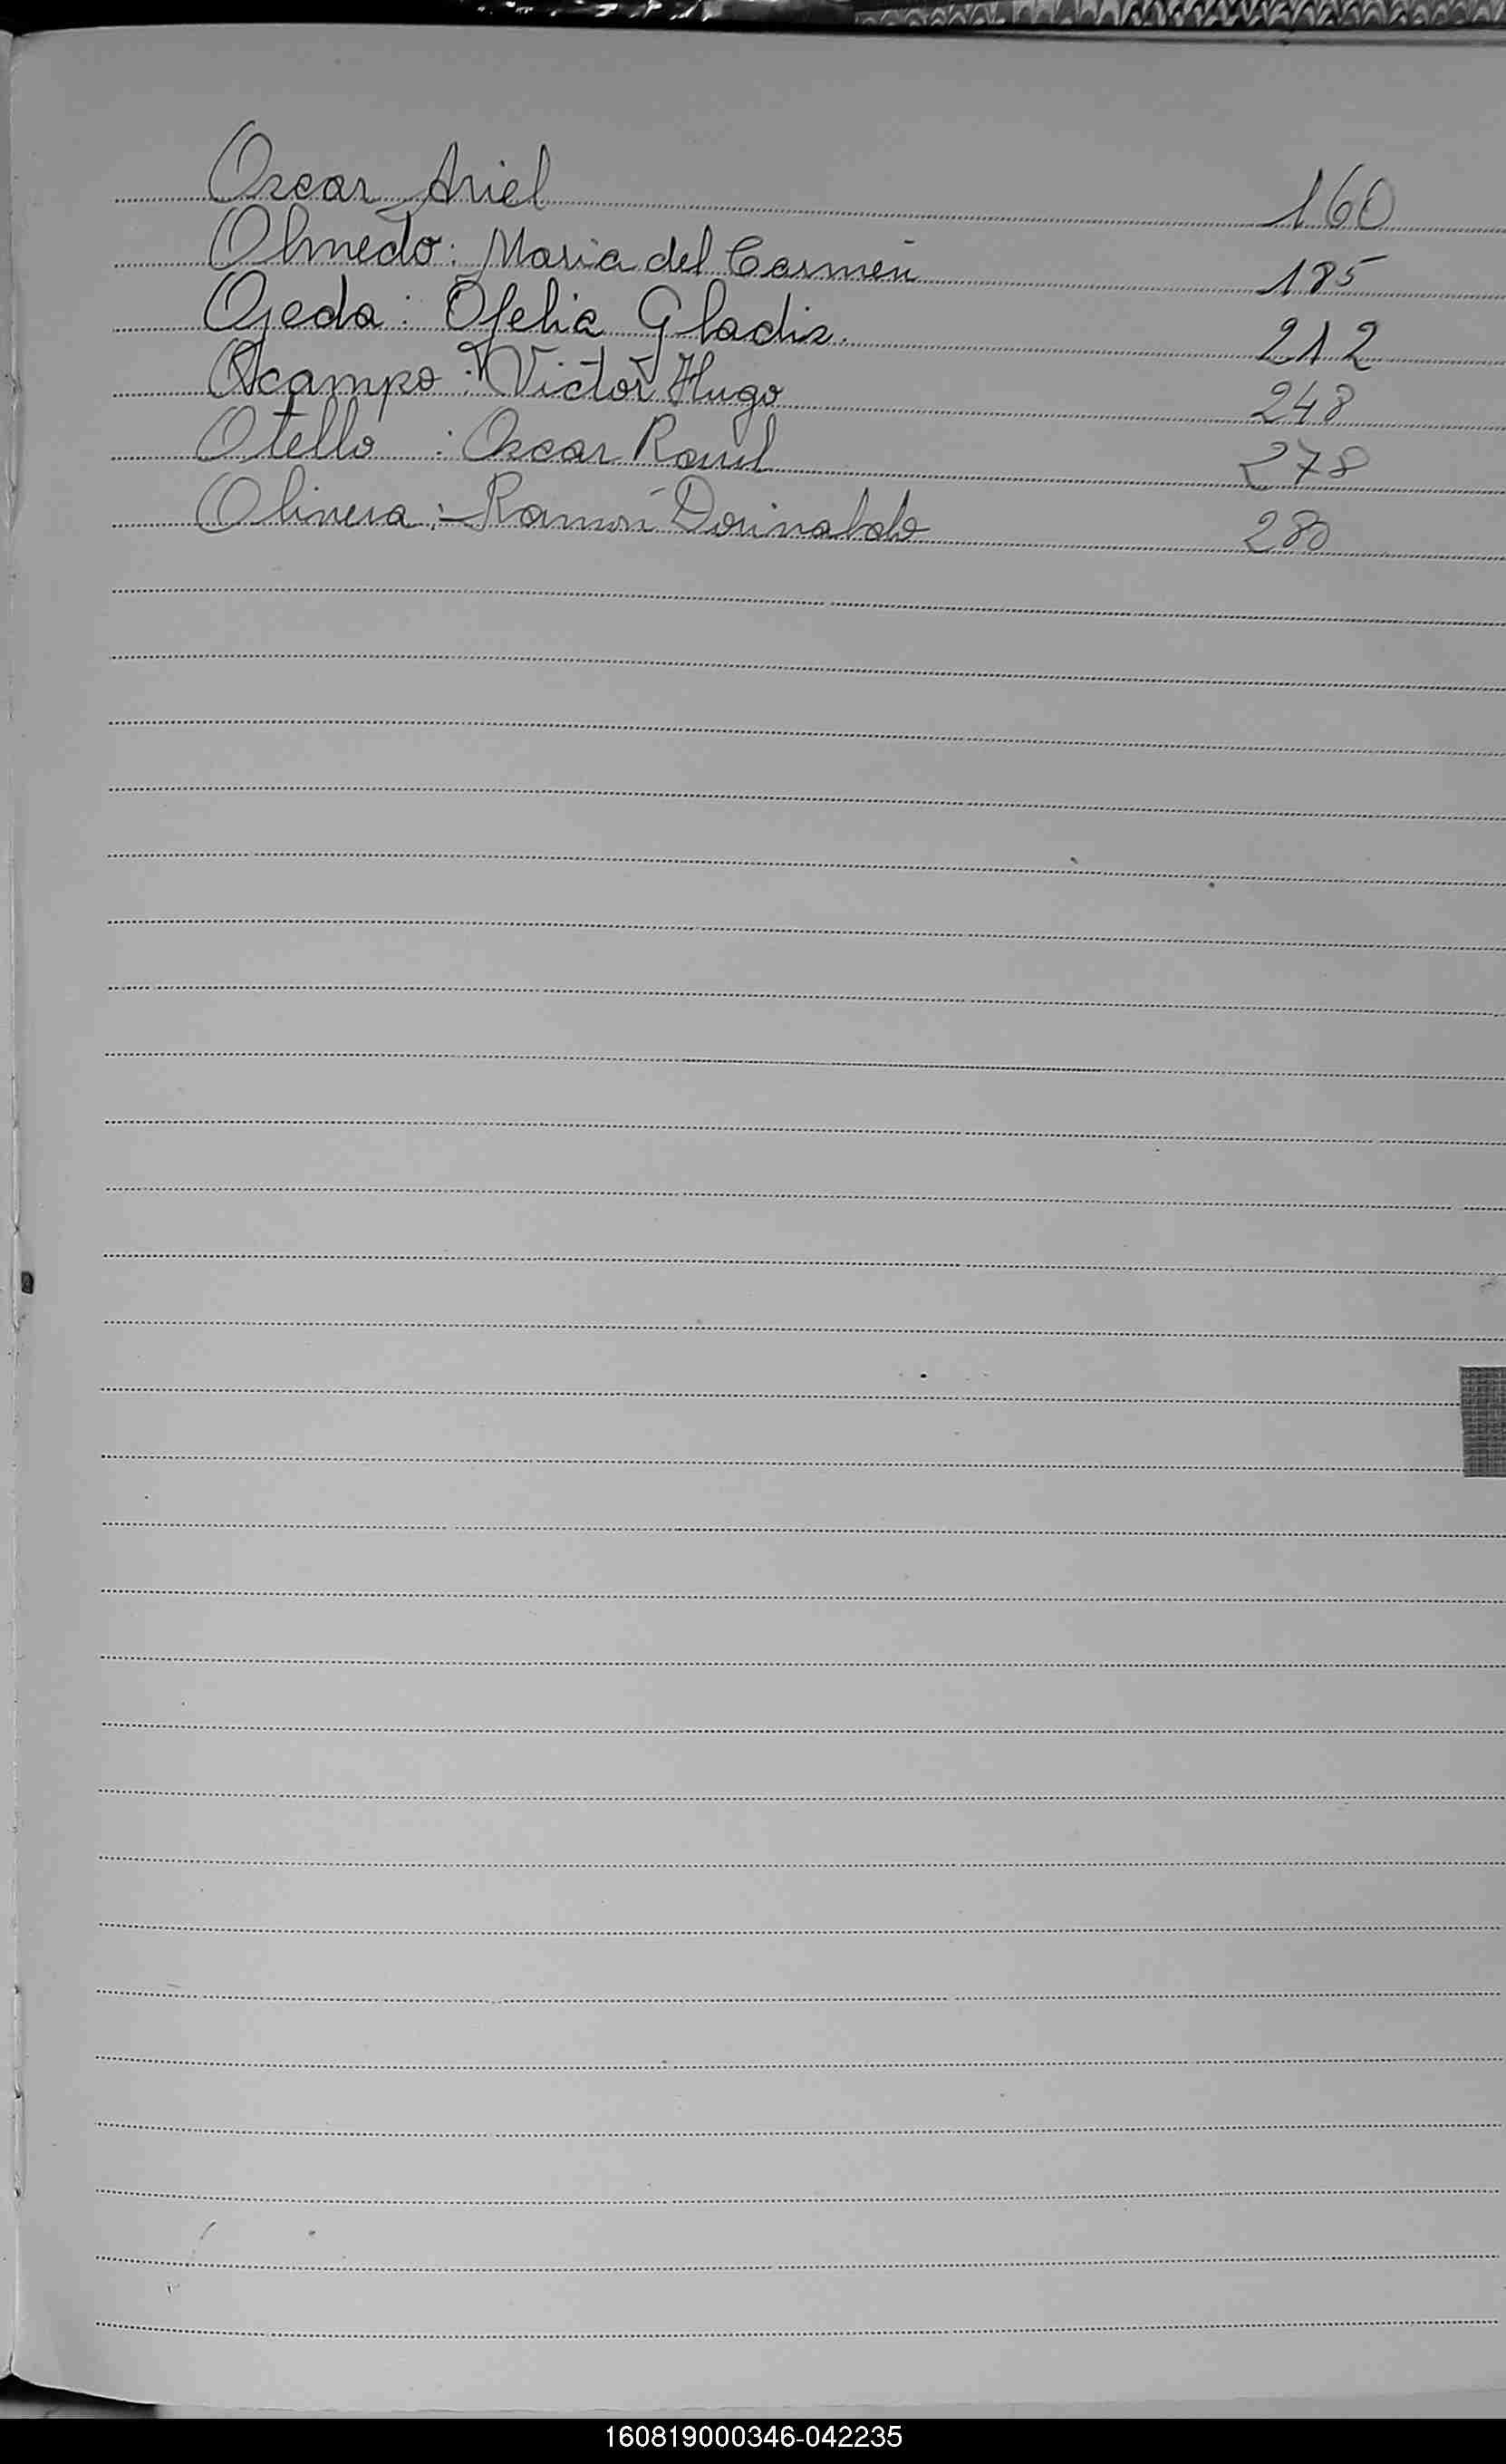 Oscar Ariel 160
Olmedo: Maria del Carmen 185
Ojeda: Ofelia Gladis. 212
Ocampo: Victor Hugo 248
Otello : Oscar Raul 278
Olivera: Ramón Dorinaldo 280
160819000346-042235